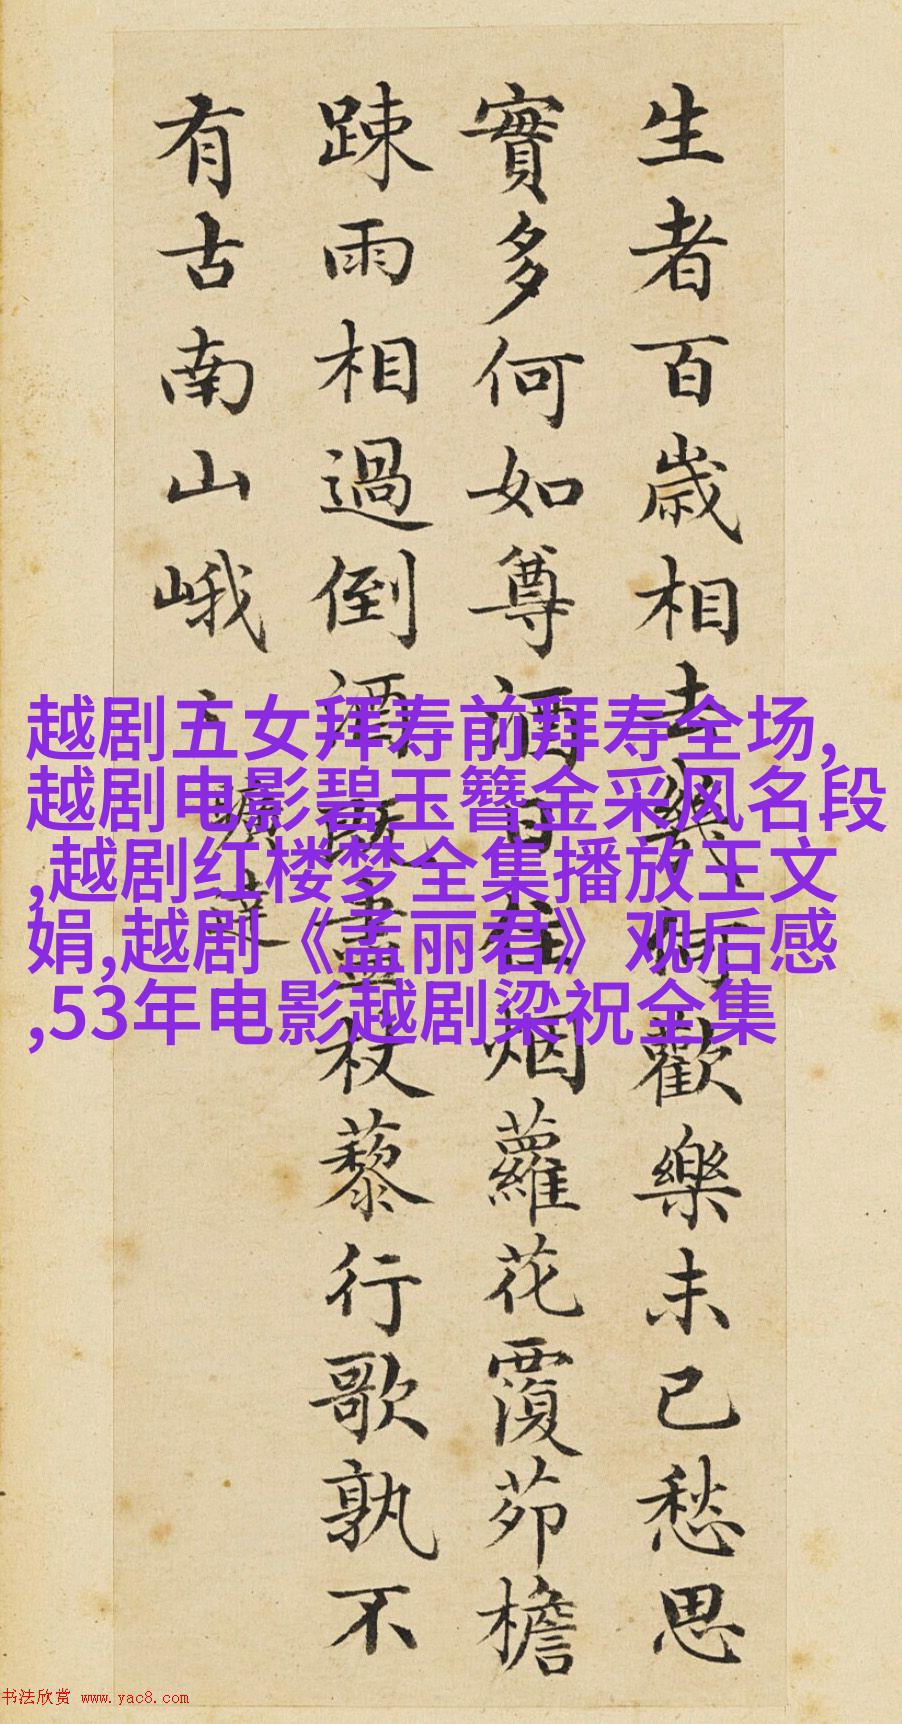 生者百歳相去幾歡樂未已愁思
實多何如尊酒日往烟蘿花覆茆檐
踈雨相過倒酒既盡杖藜行歌孰不
有古南山峨〻
曠達
越剧五女拜寿前拜寿全场,
越剧电影碧玉簪金采风名段
,越剧红楼梦全集播放王文
娟,越剧《孟丽君》观后感
,53年电影越剧梁祝全集
书法欣赏 www.yac8.com